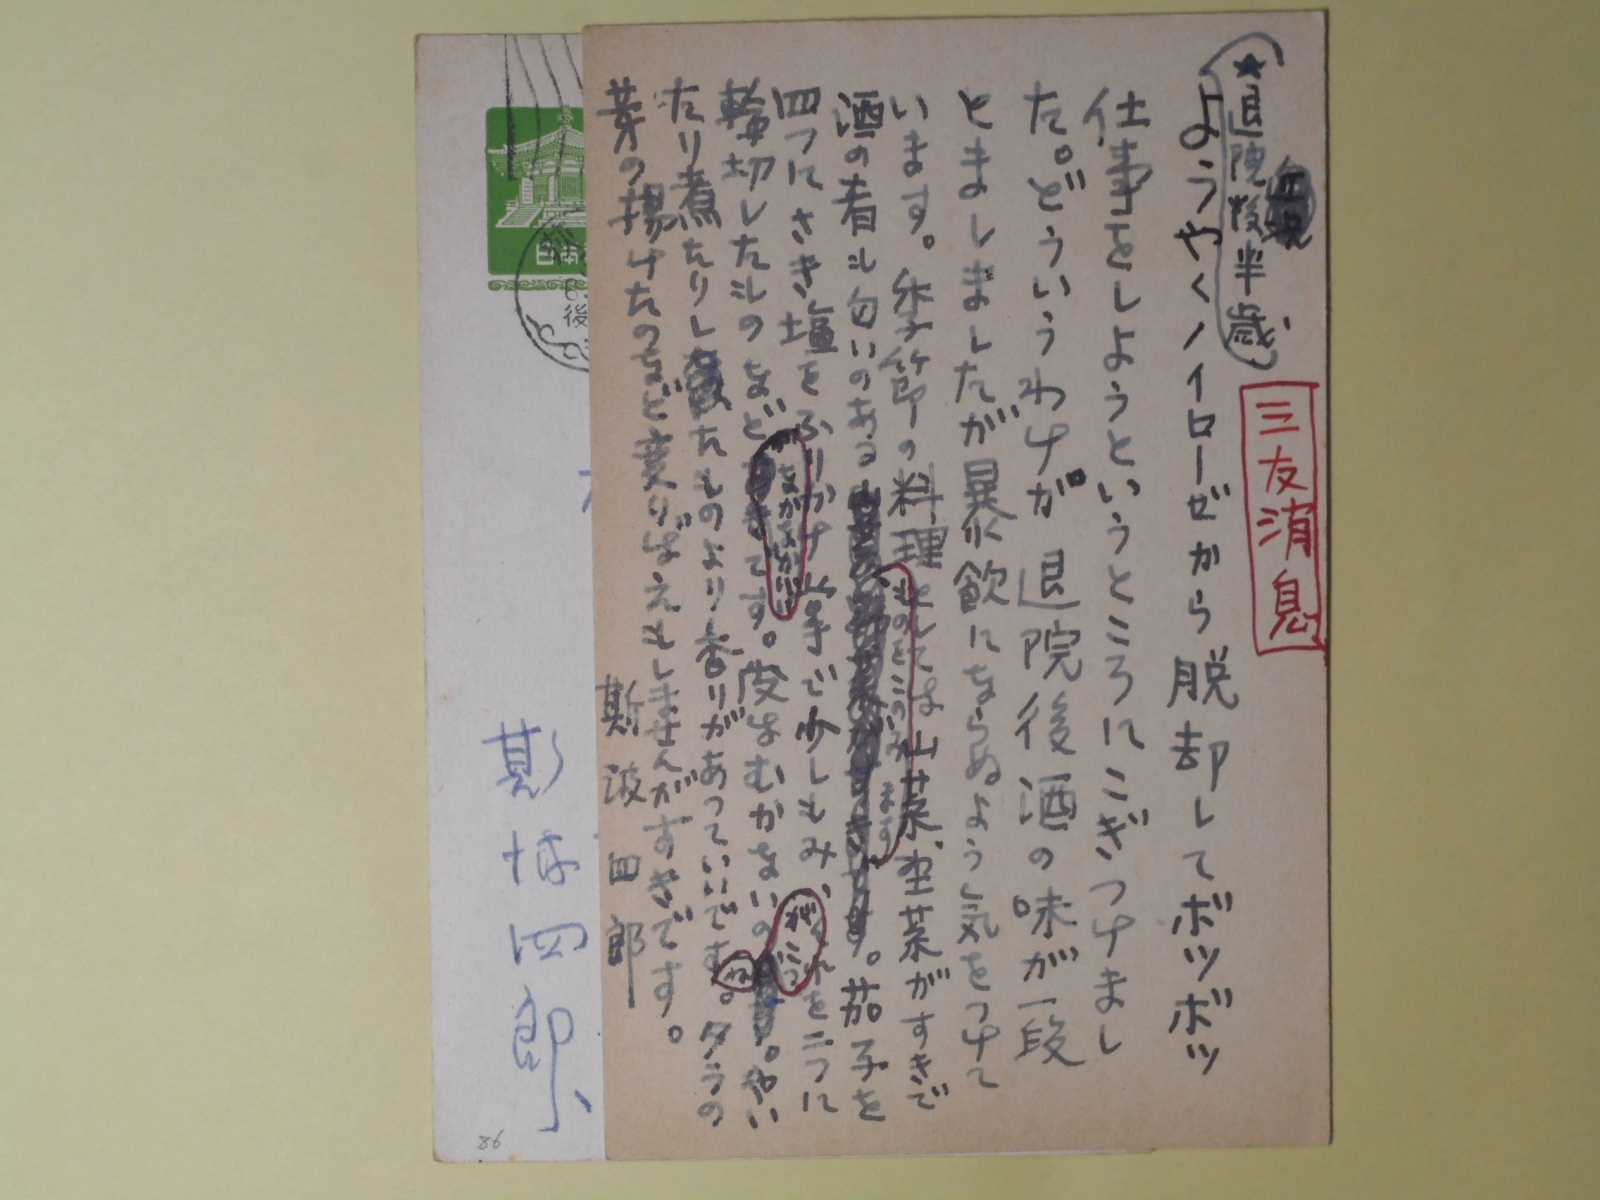 三友消息
★退院後半歳
ようやくノイローゼから脱却してボツボツ
仕事をしようというところにこぎつけまし
た。どういうわけか退院後酒の味が一段
とましましたが暴飲にならぬよう気をつけて
います。季節の料理としては山菜、野菜がすきで
ものをこのみます
酒の肴も匂いのある。茄子を
四つにさき塩をふりかけ、手で少しもみ、それを二つに
がなかなかいい
がこつ
輪切したものなどです。皮はむかないの。やい
ね
たり煮たりしたものより香りがあっていいです。タラの
芽の揚げたのなど変りばえもしませんがすきです。
斯波四郎
日本
後
斯波四郎
86